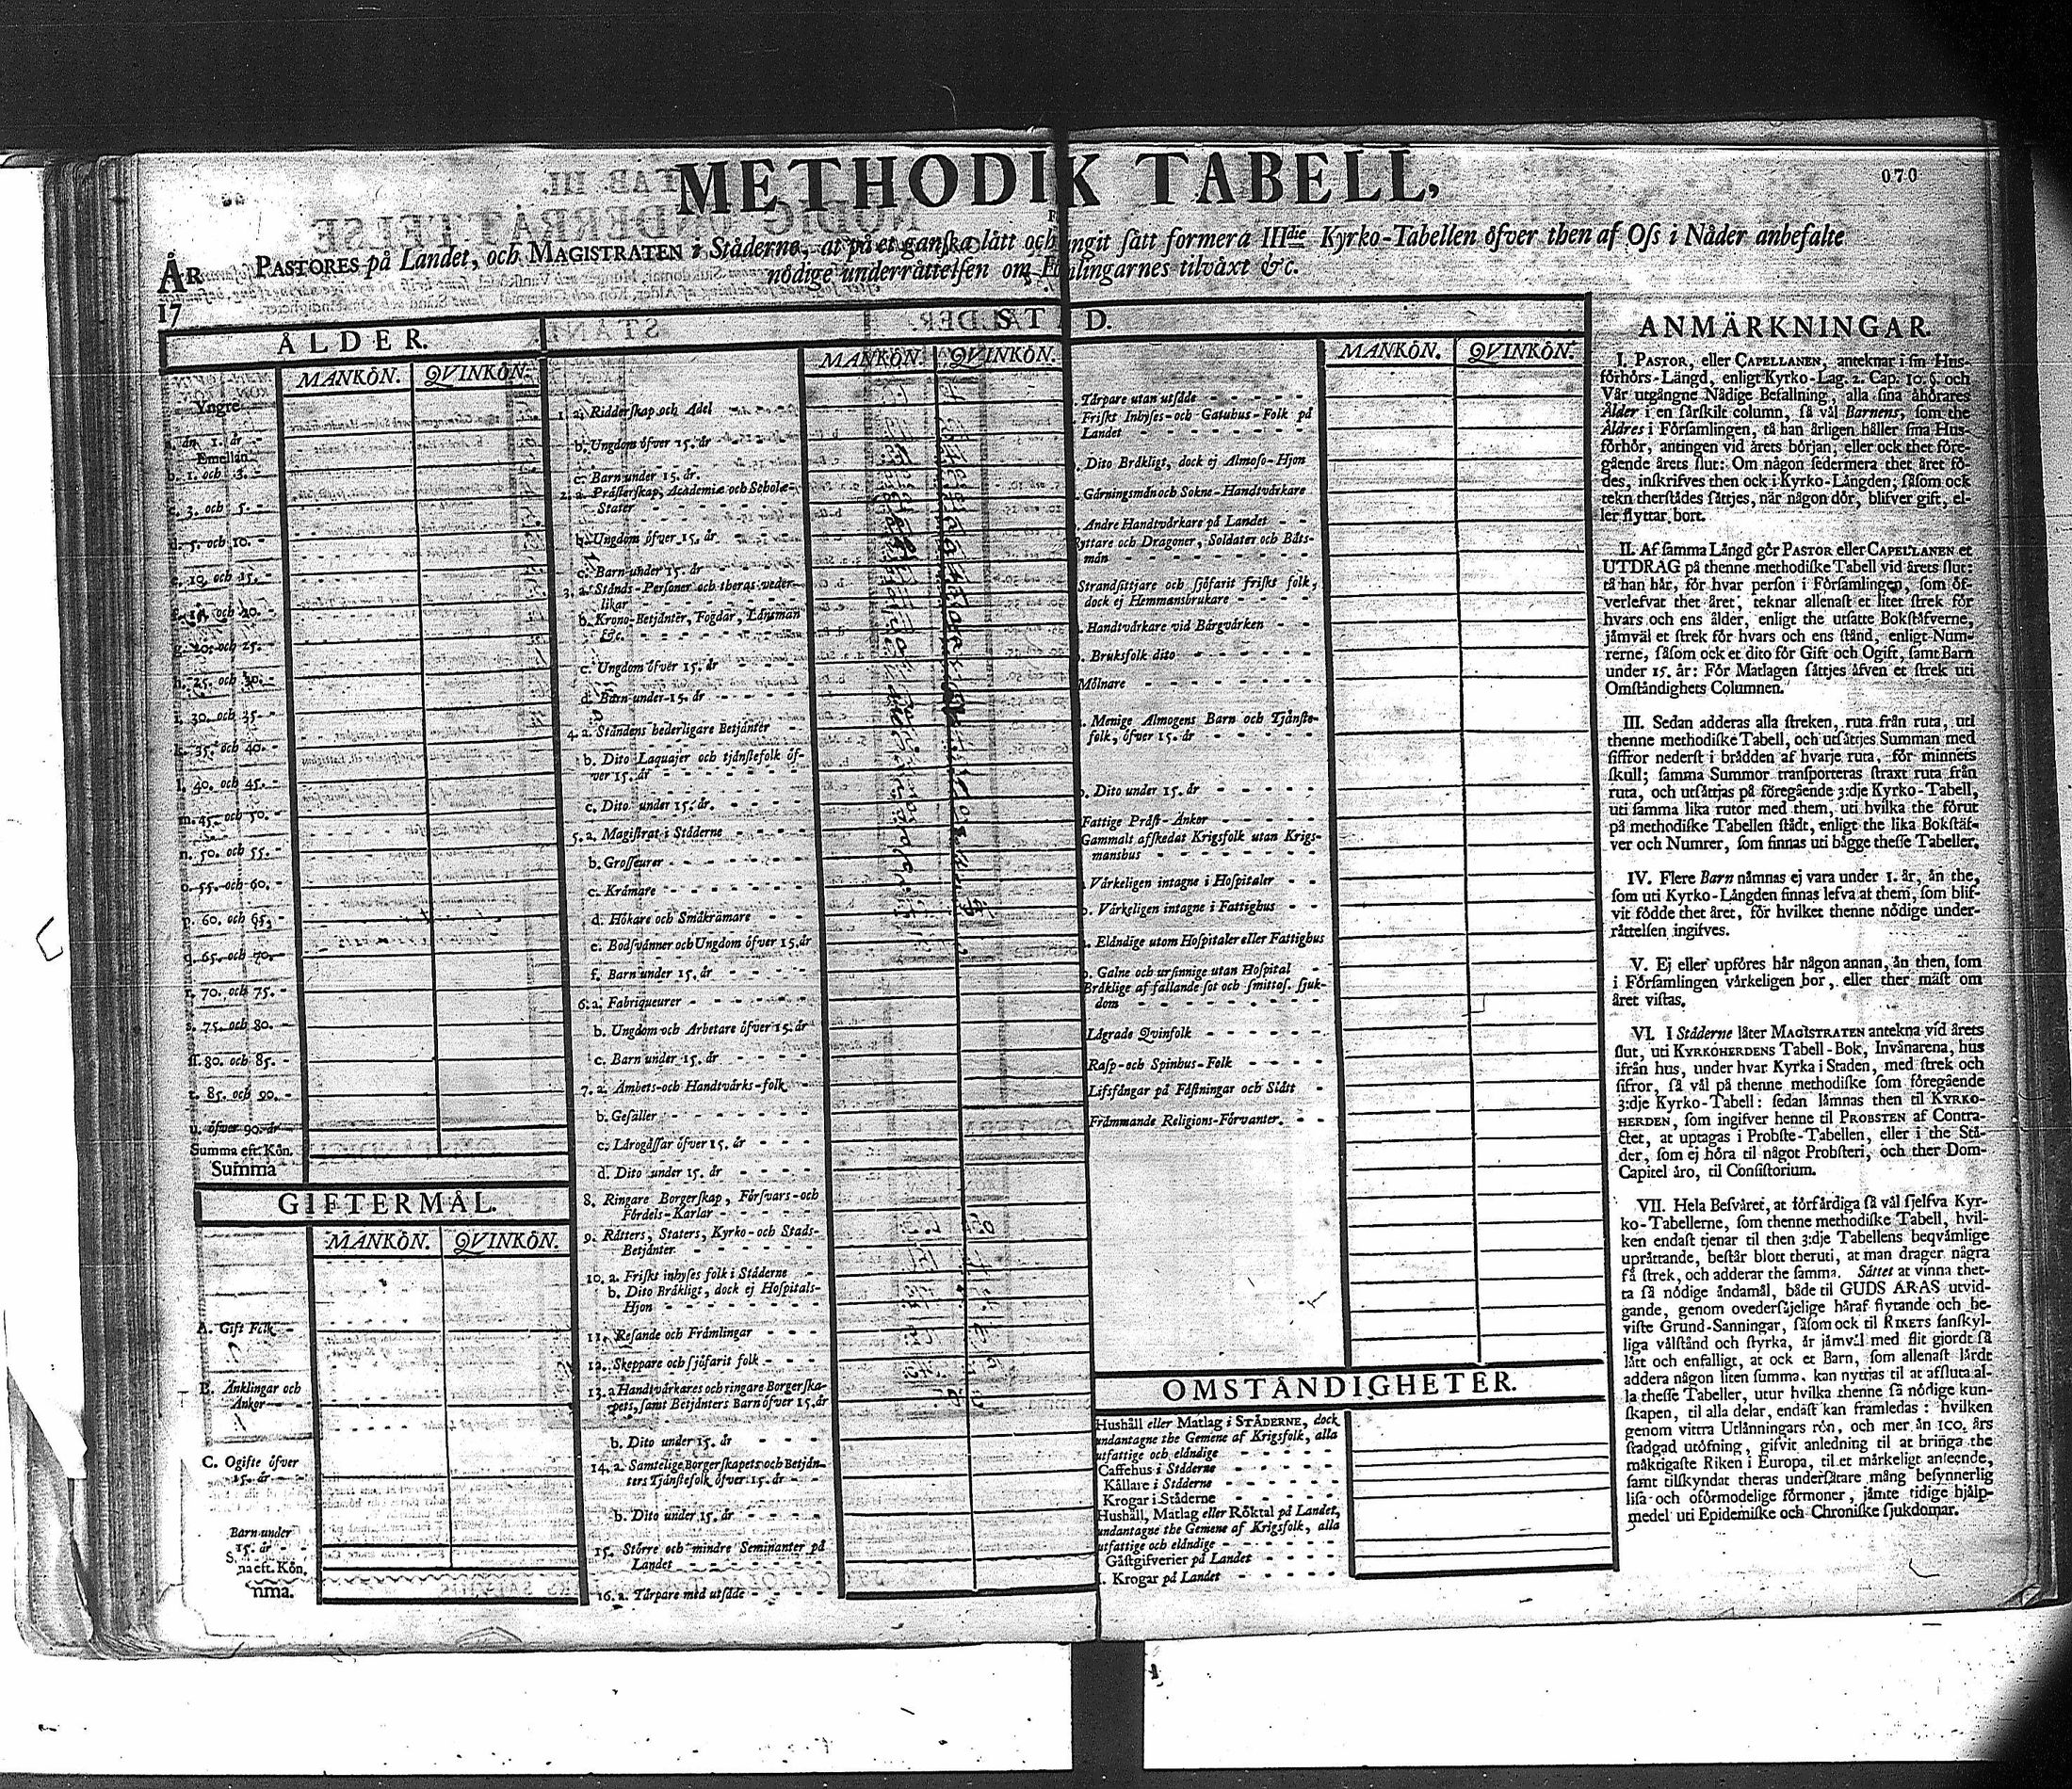 METHODIK TABELL,
070
PASTORES på Landet, och MAGISTRATEN i Ståderne, at på et ganska lått och ringit sått formera IIIdie Kyrko-Tabellen öfver then af Oss i Nåder anbefalte
nödige underråttelsen om Folingarnes tilvåxt &c.
ÅR
17
ÅLDER.
MANKÖN. QVINKÖN.
Yngre
än 1. år -
Emellan
b. 1. och 3. -
c. 3. och 5. -
d. 5. och 10. -
e. 10. och 15. -
f. 15. och 20. -
g. 20. och 25. -
h. 25. och 30. -
i. 30. och 35. -
k. 35. och 40. -
l. 40. och 45. -
m. 45. och 50. -
n. 50. och 55. -
o. 55. och 60. -
p. 60. och 65. -
q. 65. och 70. -
r. 70. och 75. -
s. 75. och 80. -
ſſ. 80. och 85. -
t. 85. och 90. -
u. öfver 90. år -
Summa eft. Kön.
Summa
GIFTERMÅL.
MANKÖN. QVINKÖN.
A. Gift Folk -
B. Änklingar och
Änkor -
C. Ogifte öfver
15. år -
Barn under
15. år -
S. na eft. Kön.
nma.
ST D.
MANKÖN. QVINKÖN.
1. a. Ridderſkap och Adel
b. Ungdom öfver 15. år
c. Barn under 15. år.
2. a. Präſterſkap, Academiæ och Scholæ-
Stater
b. Ungdom öfver 15. år
c. Barn under 15. år
3. a. Stånds-Perſoner och theras veder-
likar
b. Krono-Betjånter, Fogdar, Länsmän
&c.
c. Ungdom öfver 15. år
d. Barn under 15. år
4. a. Ståndens hederligare Betjänter
b. Dito Laquajer och tjånſtefolk öf-
ver 15. år
c. Dito under 15. år.
5. a. Magiſtrat i Ståderne
b. Groſſeurer
c. Krämare
d. Hökare och Småkrämare
e. Bodſvänner och Ungdom öfver 15. år
f. Barn under 15. år
6. a. Fabriqueurer
b. Ungdom och Arbetare öfver 15. år
c. Barn under 15. år
7. a. Ämbets-och Handtvårks-folk
b. Geſäller
c. Lårogåſſar öfver 15. år
d. Dito under 15. år
8. Ringare Borgerſkap, Förſvars-och
Fördels-Karlar
9. Råtters, Staters, Kyrko-och Stads-
Betjänter
10. a. Friſkt inhyſes folk i Ståderne
b. Dito Bråkligt, dock ej Hoſpitals-
Hjon
11. Reſande och Främlingar
12. Skeppare och ſjöfarit folk
13. a Handtvårkares och ringare Borgerſka-
pets, ſamt Betjänters Barn öfver 15. år
b. Dito under 15. år
14. a. Samtelige Borgerſkapets och Betjän-
ters Tjänſtefolk öfver 15. år
b. Dito under 15. år
15. Större och mindre Seminanter på
Landet
16. a. Tårpare med utſåde
MANKÖN. QVINKÖN.
Tårpare utan utſåde
Friſkt Inhyſes-och Gatubus-Folk på
Landet
Dito Bråkligt, dock ej Almoſo-Hjon
Gårningsmän och Sokne-Handtvårkare
Andre Handtvårkare på Landet
Ryttare och Dragoner, Soldater och Båts-
män
Strandſittjare och ſjöfarit friſkt folk,
dock ej Hemmansbrukare
Handtvårkare vid Bårgvårken
Bruksfolk dito
Mölnare
Menige Almogens Barn och Tjänſte-
folk, öfver 15. år
b. Dito under 15. år
Fattige Präſt-Änkor
Gammalt afſkedat Krigsfolk utan Krigs-
manshus
Vårkeligen intagne i Hoſpitaler
b. Vårkeligen intagne i Fattighus
Elåndige utom Hoſpitaler eller Fattighus
b. Galne och urſinnige utan Hoſpital
Bråklige af fallande ſot och ſmittoſ. ſjuk-
dom
Lågrade Qvinfolk
Raſp-och Spinhus-Folk
Lifsfångar på Fåſtningar och Slått
Främmande Religions-Förvanter.
OMSTÅNDIGHETER.
Hushåll eller Matlag i STÅDERNE, dock
undantagne the Gemene af Krigsfolk, alla
utfattige och elåndige
Caffehus i Ståderne
Kållare i Ståderne
Krogar i Ståderne
Hushåll, Matlag eller Röktal på Landet,
undantagne the Gemene af Krigsfolk, alla
utfattige och elåndige
Gåſtgifverier på Landet
Krogar på Landet
ANMÄRKNINGAR.
I. PASTOR, eller CAPELLANEN, anteknar i ſin Hus-
förhörs-Längd, enligt Kyrko-Lag. 2. Cap. 10. §. och
Vår utgångne Nådige Befallning, alla ſina åhörares
Ålder i en ſärſkilt column, ſå väl Barnens, ſom the
Äldres i Förſamlingen, tå han årligen håller ſina Hus-
förhör, antingen vid årets början, eller ock thet före-
gående årets ſlut: Om någon ſedermera thet året fö-
des, inſkrifves then ock i Kyrko-Längden; ſåſom ock
tekn therſtädes ſättjes, när någon dör, blifver gift, el-
ler flyttar bort.
II. Af ſamma Längd gör PASTOR eller CAPELLANEN et
UTDRAG på thenne methodiſke Tabell vid årets ſlut:
tå han här, för hvar perſon i Förſamlingen, ſom öf-
verlefvat thet året, teknar allenaſt et litet ſtrek för
hvars och ens ålder, enligt the utſatte Bokſtäfverne,
jämväl et ſtrek för hvars och ens ſtånd, enligt Num-
rerne, ſåſom ock et dito för Gift och Ogift, ſamt Barn
under 15. år: För Matlagen ſättjes äfven et ſtrek uti
Omſtändighets Columnen.
III. Sedan adderas alla ſtreken, ruta från ruta, uti
thenne methodiſke Tabell, och utſättjes Summan med
ſiffror nederſt i brädden af hvarje ruta, för minnets
ſkull; ſamma Summor transporteras ſtraxt ruta från
ruta, och utſättjas på föregående 3:dje Kyrko-Tabell,
uti ſamma lika rutor med them, uti hvilka the förut
på methodiſke Tabellen ſtådt, enligt the lika Bokſtäf-
ver och Numrer, ſom finnas uti bägge theſſe Tabeller.
IV. Flere Barn nämnas ej vara under 1. år, än the,
ſom uti Kyrko-Längden finnas lefva at them, ſom blif-
vit födde thet året, för hvilket thenne nödige under-
rättelſen ingifves.
V. Ej eller upföres här någon annan, än then, ſom
i Förſamlingen värkeligen bor, eller ther mäſt om
året viſtas.
VI. I Städerne låter MAGISTRATEN antekna vid årets
ſlut, uti KYRKOHERDENS Tabell-Bok, Invånarena, hus
ifrån hus, under hvar Kyrka i Staden, med ſtrek och
ſifror, ſå väl på thenne methodiſke ſom föregående
3:dje Kyrko-Tabell: ſedan lämnas then til KYRKO-
HERDEN, ſom ingifver henne til PROBSTEN af Contra-
ctet, at uptagas i Probſte-Tabellen, eller i the Stä-
der, ſom ej höra til något Probſteri, och ther Dom-
Capitel äro, til Conſiſtorium.
VII. Hela Beſväret, at förfärdiga ſå väl ſjelfva Kyr-
ko-Tabellerne, ſom thenne methodiſke Tabell, hvil-
ken endaſt tjenar til then 3:dje Tabellens beqvämlige
uprättande, beſtår blott theruti, at man drager några
få ſtrek, och adderar the ſamma. Sättet at vinna thet-
ta ſå nödige ändamål, både til GUDS ÄRAS utvid-
gande, genom ovederſäjelige häraf flytande och be-
viſte Grund-Sanningar, ſåſom ock til RIKETS ſanſkyl-
liga välſtånd och ſtyrka, är jämväl med flit gjordt ſå
lätt och enfalligt, at ock et Barn, ſom allenaſt lärdt
addera någon liten ſumma, kan nyttjas til at afſluta al-
la theſſe Tabeller, utur hvilka thenne ſå nödige kun-
ſkapen, til alla delar, endaſt kan framledas: hvilken
genom vittra Utlänningars rön, och mer än 100. års
ſtadgad utöfning, gifvit anledning til at bringa the
mäktigaſte Riken i Europa, til et märkeligt anſeende,
ſamt tilſkyndat theras underſåtare mång beſynnerlig
liſa och oförmodelige förmoner, jämte tidige hjälp-
medel uti Epidemiſke och Chroniſke ſjukdomar.